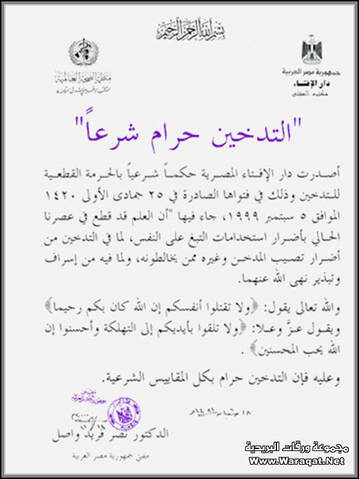 بسم الله الرحمن الرحيم
منظمة الصحة العالمية
جمهورية مصر العربية
دار الإفتاء
"التدخين حرام شرعاً"
أصدرت دار الإفتاء المصرية حكماً شرعياً بالحرمة القطعية
للتدخين وذلك في فتواها الصادرة في ٢٥ جمادى الأولى ١٤٢٠
الموافق ٥ سبتمبر ١٩٩٩، جاء فيها "أن العلم قد قطع في عصرنا
الحالي بأضرار استخدامات التبغ على النفس، لما في التدخين من
أضرار تصيب المدخن وغيره ممن يخالطونه، ولما فيه من إسراف
وتبذير نهى الله عنهما.
والله تعالى يقول: ﴿ولا تقتلوا أنفسكم إن الله كان بكم رحيما﴾
ويقول عزَّ وعلا: ﴿ولا تلقوا بأيديكم إلى التهلكة وأحسنوا إن
الله يحب المحسنين﴾ .
وعليه فإن التدخين حرام بكل المقاييس الشرعية.
الدكتور نصر فريد واصل
مفتي جمهورية مصر العربية
مجموعة ورقات البريدية
www.Waraqat.Net